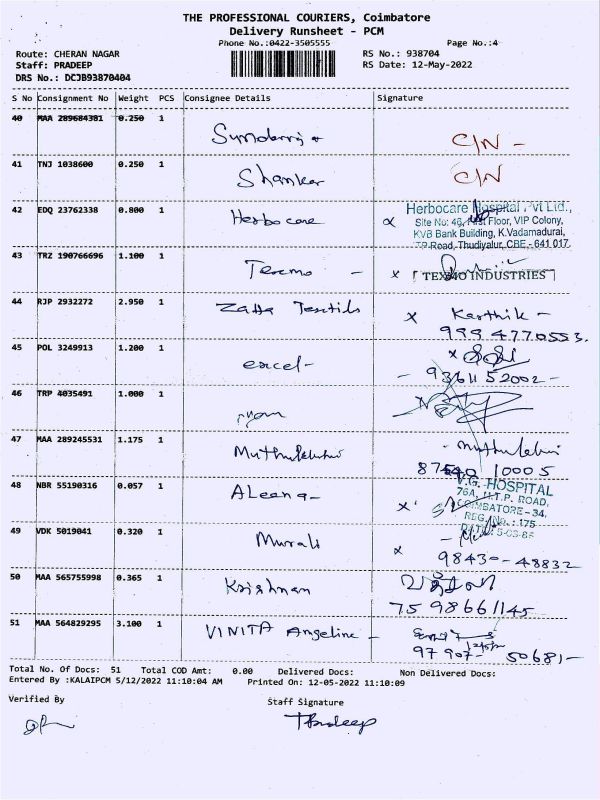 THE PROFESSIONAL COURIERS, Coimbatore
Delivery Runsheet - PCM
Phone No.:0422-3505555 Page No.:4
Route: CHERAN NAGAR RS No.: 938704
Staff: PRADEEP RS Date: 12-May-2022
DRS No.: DCJB93870404
S No Consignment No Weight PCS Consignee Details Signature
40 MAA 289684381 0.250 1
C/N -
41 TNJ 1038600 0.250 1
Shanker C/N
42 EDQ 23762338 0.800 1
Herbocare Herbocare Hospital Pvt Ltd.,
Site No: 46, First Floor, VIP Colony,
KVB Bank Building, K.Vadamadurai,
TP Road, Thudiyalur, CBE - 641 017.
43 TRZ 190766696 1.100 1
Texmo - x TEXMO INDUSTRIES
44 RJP 2932272 2.950 1
x Karthik -
999 4770553.
45 POL 3249913 1.200 1
excel - x
- 9361152002 -
46 TRP 4035491 1.000 1
47 MAA 289245531 1.175 1
10005
48 NBR 55190316 0.057 1
ALeena - V.G. HOSPITAL
76A, M.T.P. ROAD,
COIMBATORE - 34.
REG. No.: 175
49 VDK 5019041 0.320 1
Murali x
98430-48832
50 MAA 565755998 0.365 1
Krishnan
7598661145
51 MAA 564829295 3.100 1
VINITA Angeline -
97907- 50681-
Total No. Of Docs: 51 Total COD Amt: 0.00 Delivered Docs: Non Delivered Docs:
Entered By :KALAIPCM 5/12/2022 11:10:04 AM Printed On: 12-05-2022 11:10:09
Verified By Staff Signature